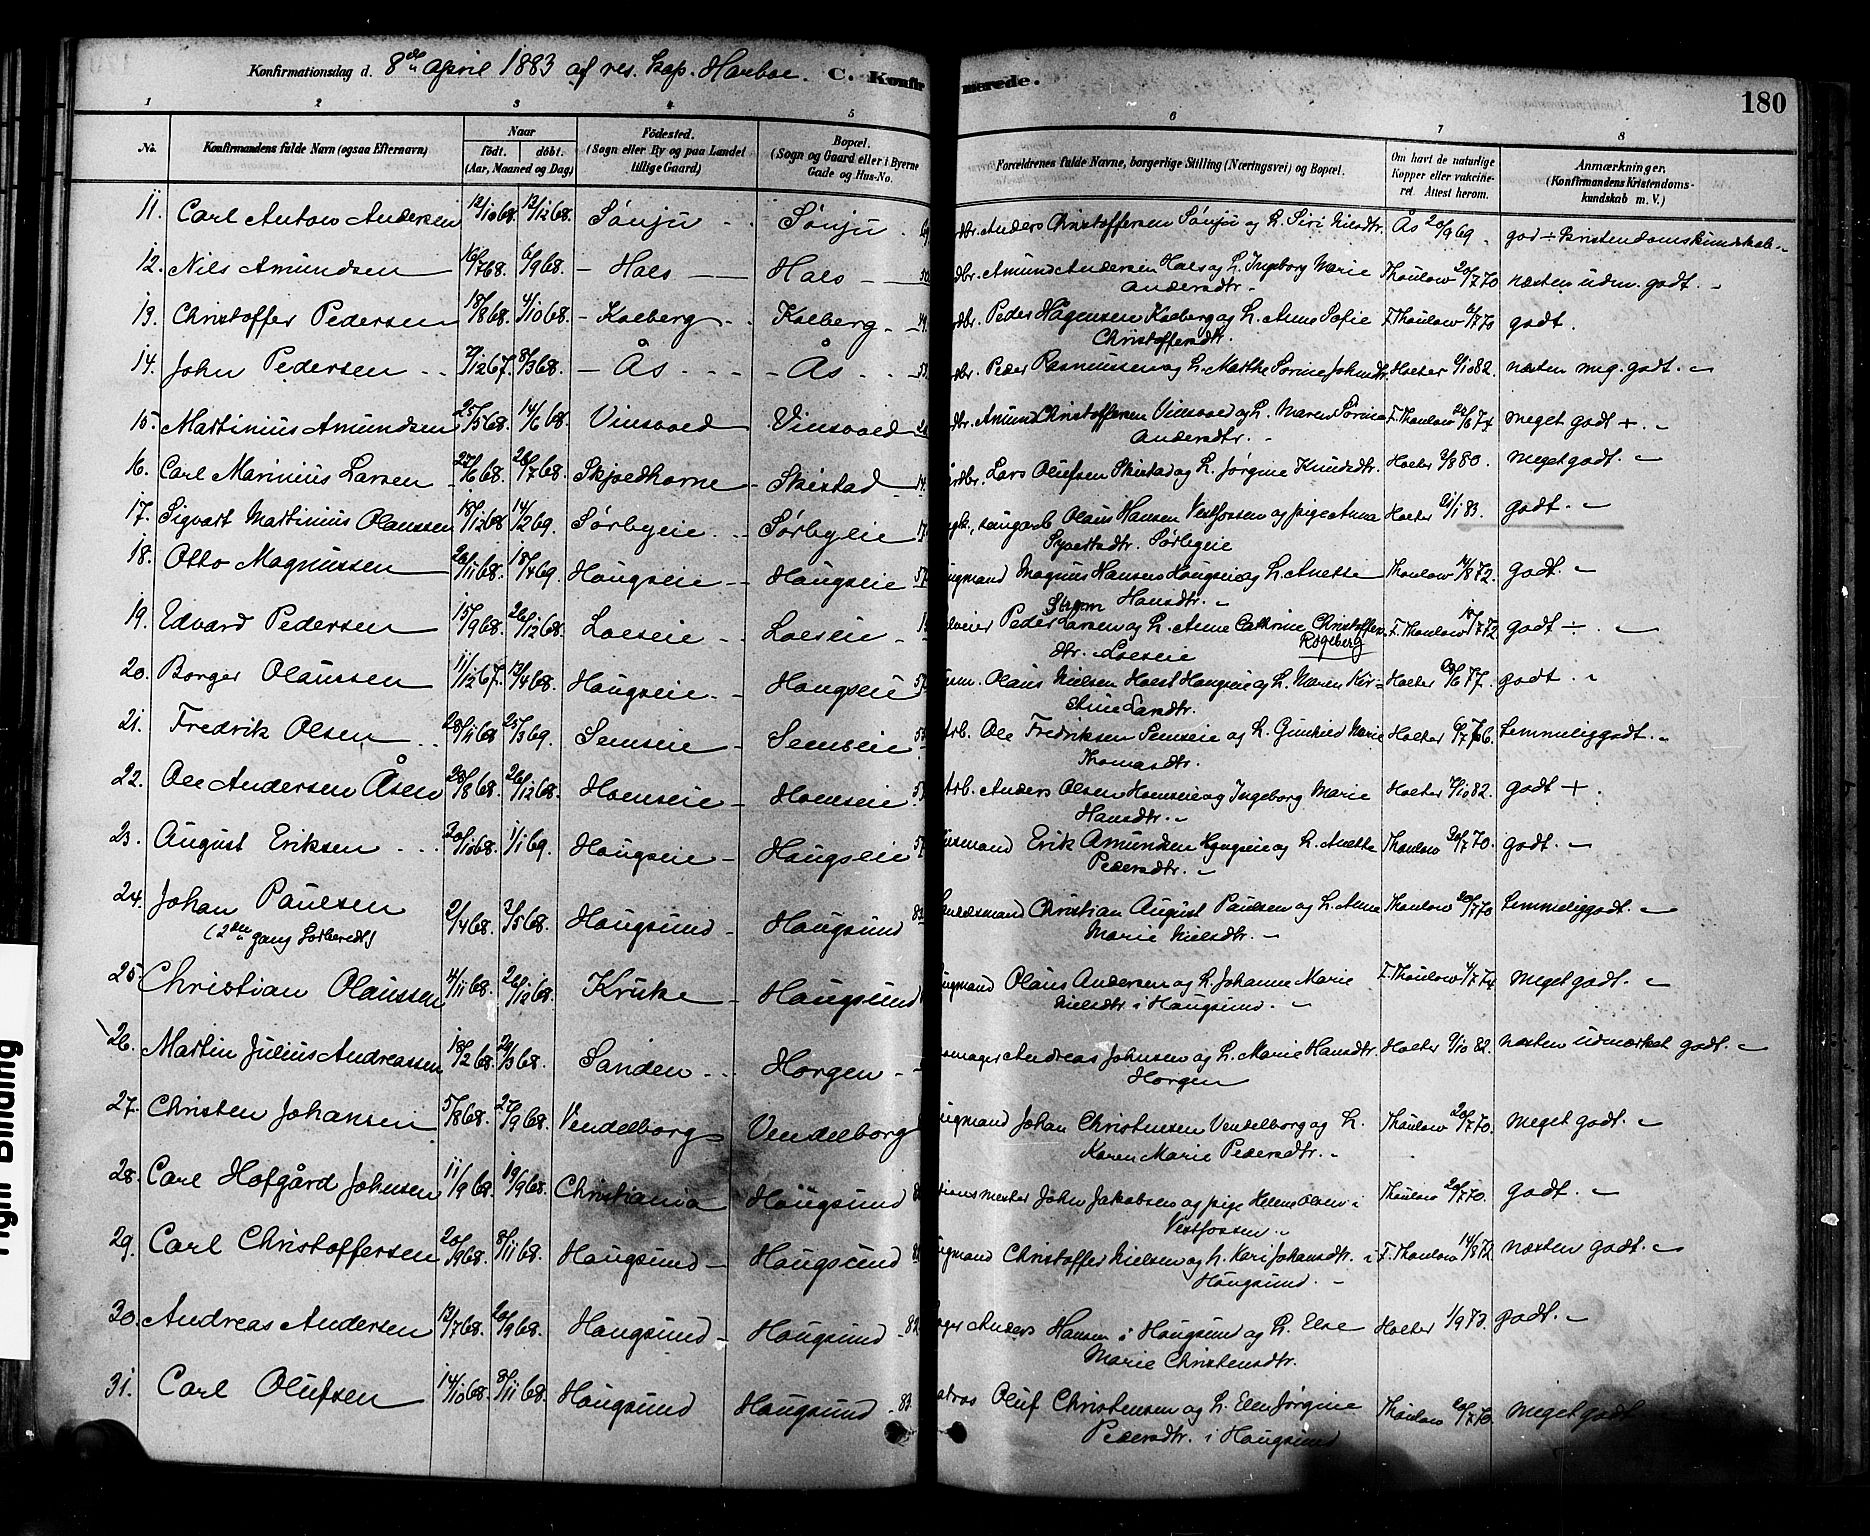 Konfirmationsdag d. 8de April 1883 af res. kap. Harboe. C. Konfirmerede.
180
1 2 3 4 5 6 7 8
No. Konfirmandens fulde Navn (ogsaa Efternavn) Naar født. døbt. (Aar, Maaned og Dag) Fødested. (Sogn eller By og paa Landet tillige Gaard) Bopæl. (Sogn og Gaard eller i Byerne Gade og Hus-No. Forældrenes fulde Navne, borgerlige Stilling (Næringsvei) og Bopæl. Om havt de naturlige Kopper eller vakcineret. Attest herom. Anmærkninger. (Konfirmandens Kristendomskundskab m. V.)
11. Carl Anton Andersen 12/10 68. 12/12 68. Sønju Sønju Anders Christoffersen Sønju og h. Siri Nilsdtr. Ås 20/9 69. god ÷ kristendomskundskab
12. Nils Amundsen 16/7 68. 6/9 68. Hals Hals Amund Andersen Hals og h. Ingeborg Marie Thaulow 20/7 70 næsten udm. godt.
Andersdtr.
13. Christoffer Pedersen 18/8 68. 4/10 68. Kolberg Kolberg Peder Hagensen Kolberg og h. Anne Sofie F. Thaulow godt.
Christoffersdtr.
14. John Pedersen 7/12 67. 8/3 68. Ås Ås Peder Rasmussen og h. Marthe Sørine Johnsdtr. Holter 9/10 82. næsten meg. godt.
15. Martinius Amundsen 25/5 68. 14/6 68. Vinsvold Vinsvold Amund Christoffersen Vinsvold og h. Maren Sørine F. Thaulow meget godt +.
Andersdtr.
16. Carl Marinius Larsen 27/6 68. 26/7 68. Skjedhorne Skistad Lars Olufsen Skistad og h. Jørgine Knudsdtr. Holter 3/8 80. meget godt.
17. Sigvart Martinius Olaussen 18/12 68 14/2 69. Sørbyeie Sørbyeie Olaus Hansen Vestfossen og pige Anna Holter godt.
Syvertsdtr. Sørbyeie
18. Otto Magnussen 26/11 68. 18/4 69. Haugseie Haugseie Magnus Hansen Haugseie og h. Anette Thaulow 14/8 72. godt.
Hansdtr.
19. Edvard Pedersen 15/9 68. 26/12 68. Loeseie Loeseie Peder Larsen Strøm og h. Anne Cathrine Christoffers F. Thaulow godt ÷.
dtr. Loeseie Røgeberg
20. Borger Olaussen 11/12 67. 13/4 68. Haugseie Haugseie Olaus Nielsen Haugseie og h. Maren Kir- Holter godt.
stine Larsdtr.
21. Fredrik Olsen 28/11 68 25/3 69. Semseie Semseie Arb. Ole Fredriksen Semseie og h. Gunhild Marie Holter temmelig godt.
Thomasdtr.
22. Ole Andersen Åsen 28/8 68. 26/12 68. Homseie Homseie Arb. Anders Olsen Homseie og Ingeborg Marie Holter 7/10 82. godt +.
Hansdtr.
23. August Eriksen 30/10 68. 1/1 69. Haugseie Haugseie Erik Amundsen Haugseie og h. Anette Thaulow 30/7 70. godt.
Pedersdtr.
24. Johan Paulsen 2/4 68. 3/5 68. Haugsund Haugsund Christian August Paulsen og h. Anne Thaulow 20/7 70 temmelig godt.
(2den gang forberedt) Marie Nielsdtr.
25. Christian Olaussen 4/11 68. 26/12 68. Kruke Haugsund Olaus Andersen og h. Johanne Marie F. Thaulow 4/7 74 meget godt.
Nielsdtr i Haugsund.
26. Martin Julius Andreassen 18/2 68. 29/3 68. Sanden Horgen Andreas Johnsen og h. Marie Hansdtr. Holter 9/10 82. næsten udmærket godt.
Horgen
27. Christen Johansen 5/8 68. 27/9 68. Vendelborg Vendelborg Johan Christensen Vendelborg og h. Thaulow 20/7 70. meget godt.
Karen Marie Pedersdtr.
28. Carl Hofgård Johnsen 11/9 68. 19/9 68. Christiania Haugsund John Jakobsen og pige Helene Olsen i Thaulow 20/7 70. godt.
Vestfossen
29. Carl Christoffersen 20/9 68. 8/11 68. Haugsund Haugsund Christoffer Nielsen og h. Kari Johansdtr. i F. Thaulow 14/8 72. næsten godt.
Haugsund.
30. Andreas Andersen 13/7 68. 20/9 68. Haugsund Haugsund 82 Anders Hansen i Haugsund og h. Else Holter 1/9 83. godt.
Marie Christensdtr.
31. Carl Olufsen 14/10 68. 8/11 68. Haugsund Haugsund 83. Oluf Christensen og h. Elen Jørgine Thaulow 20/7 70. meget godt
Pedersdtr. i Haugsund